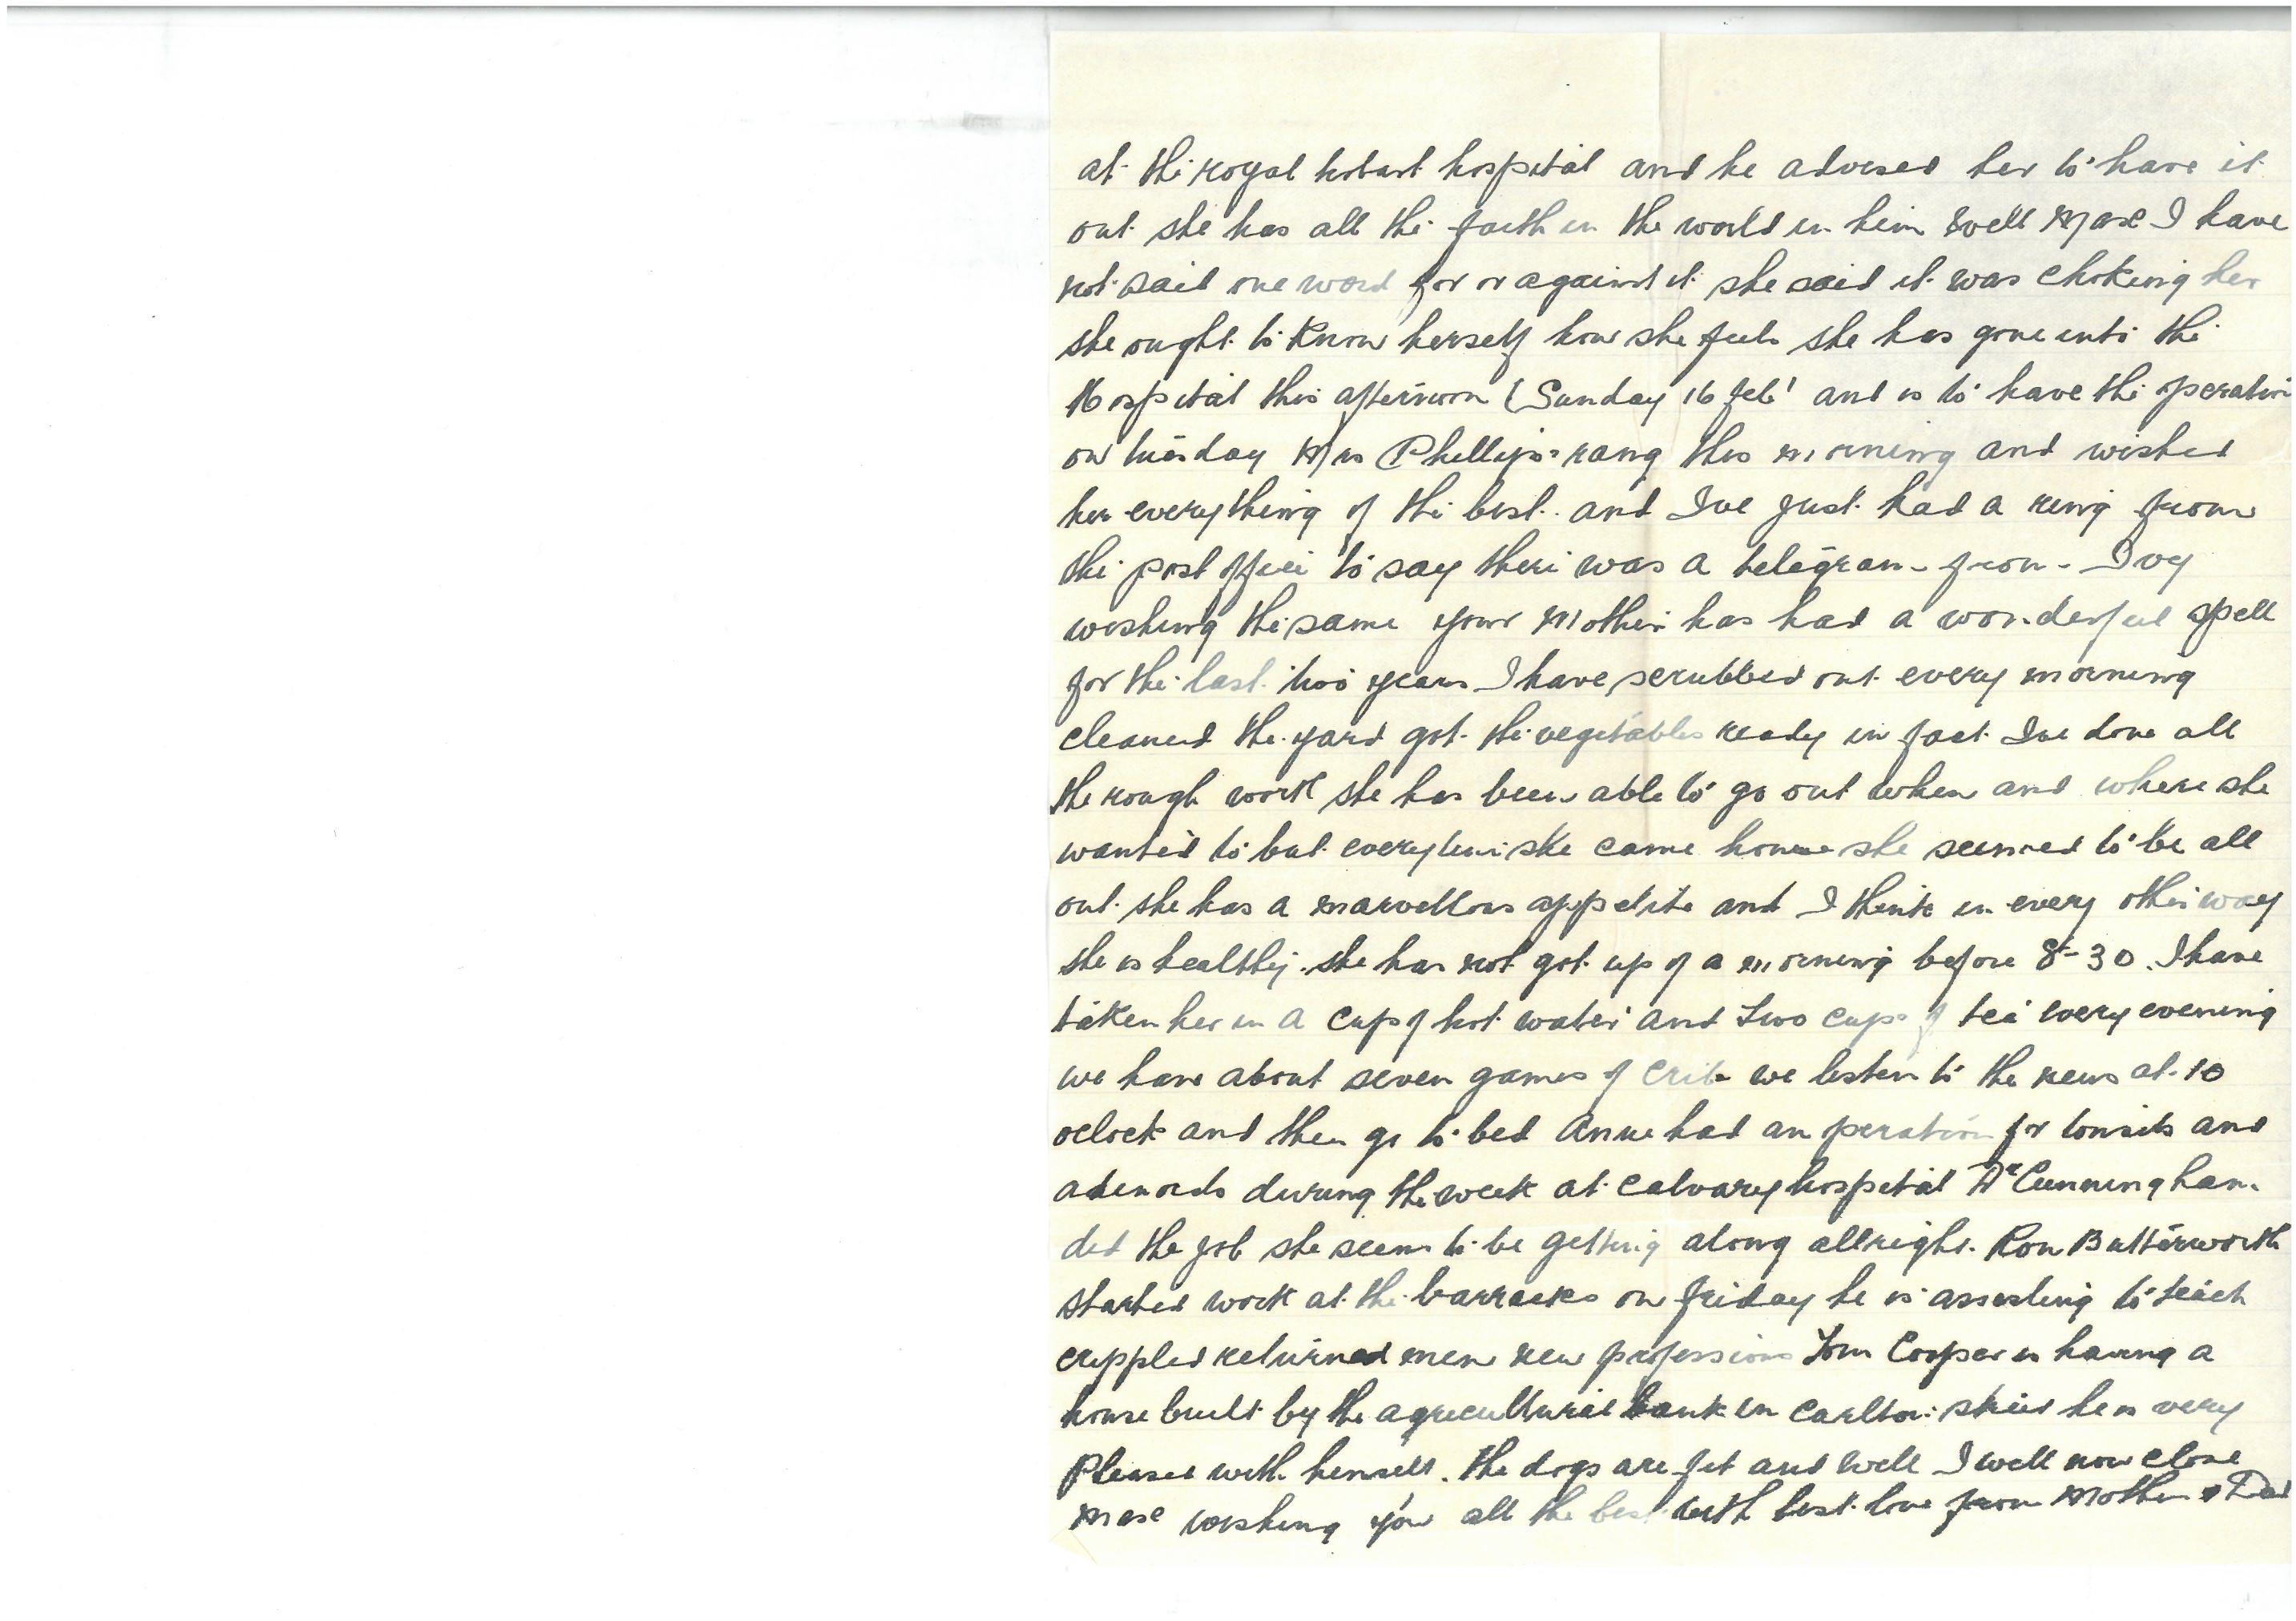 at the royal hobart hospital and he advised her to have it
out she has all the faith in the world in him well Max I have
not said one word for or against it she said it was choking her
she ought to know herself how she feels she has gone into the
Hospital this afternoon (Sunday 16 feb) and is to have the operation
on tuesday Mrs Phillips rang this morning and wished
her everything of the best. and I've just had a ring from
the post office to say there was a telegram from Ivy
wishing the same your Mother has had a wonderful spell
for the last two years I have scrubbed out every morning
cleaned the yard got the vegetables ready in fact I've done all
the rough work she has been able to go out when and where she
wanted to but everytime she came home she seemed to be all
out she has a marvellous appetite and I think in every other way
she is healthy. she has not got up of a morning before 8-30. I have
taken her in a cup of hot water and two cups of tea every evening
we have about seven games of crib we listen to the news at 10
oclock and then go to bed Anne had an operation for tonsils and
adenoids during the week at calvary hospital Dr Cunningham
did the job she seems to be getting along allright. Ron Butterworth
started work at the barracks on friday he is assisting to teach
crippled returned men new professions Tom Cooper is having a
house built by the agricultural bank in carlton street he is very
Pleased with himself. the dogs are fit and well I will now close
Max wishing you all the best with best love from Mother & Dad